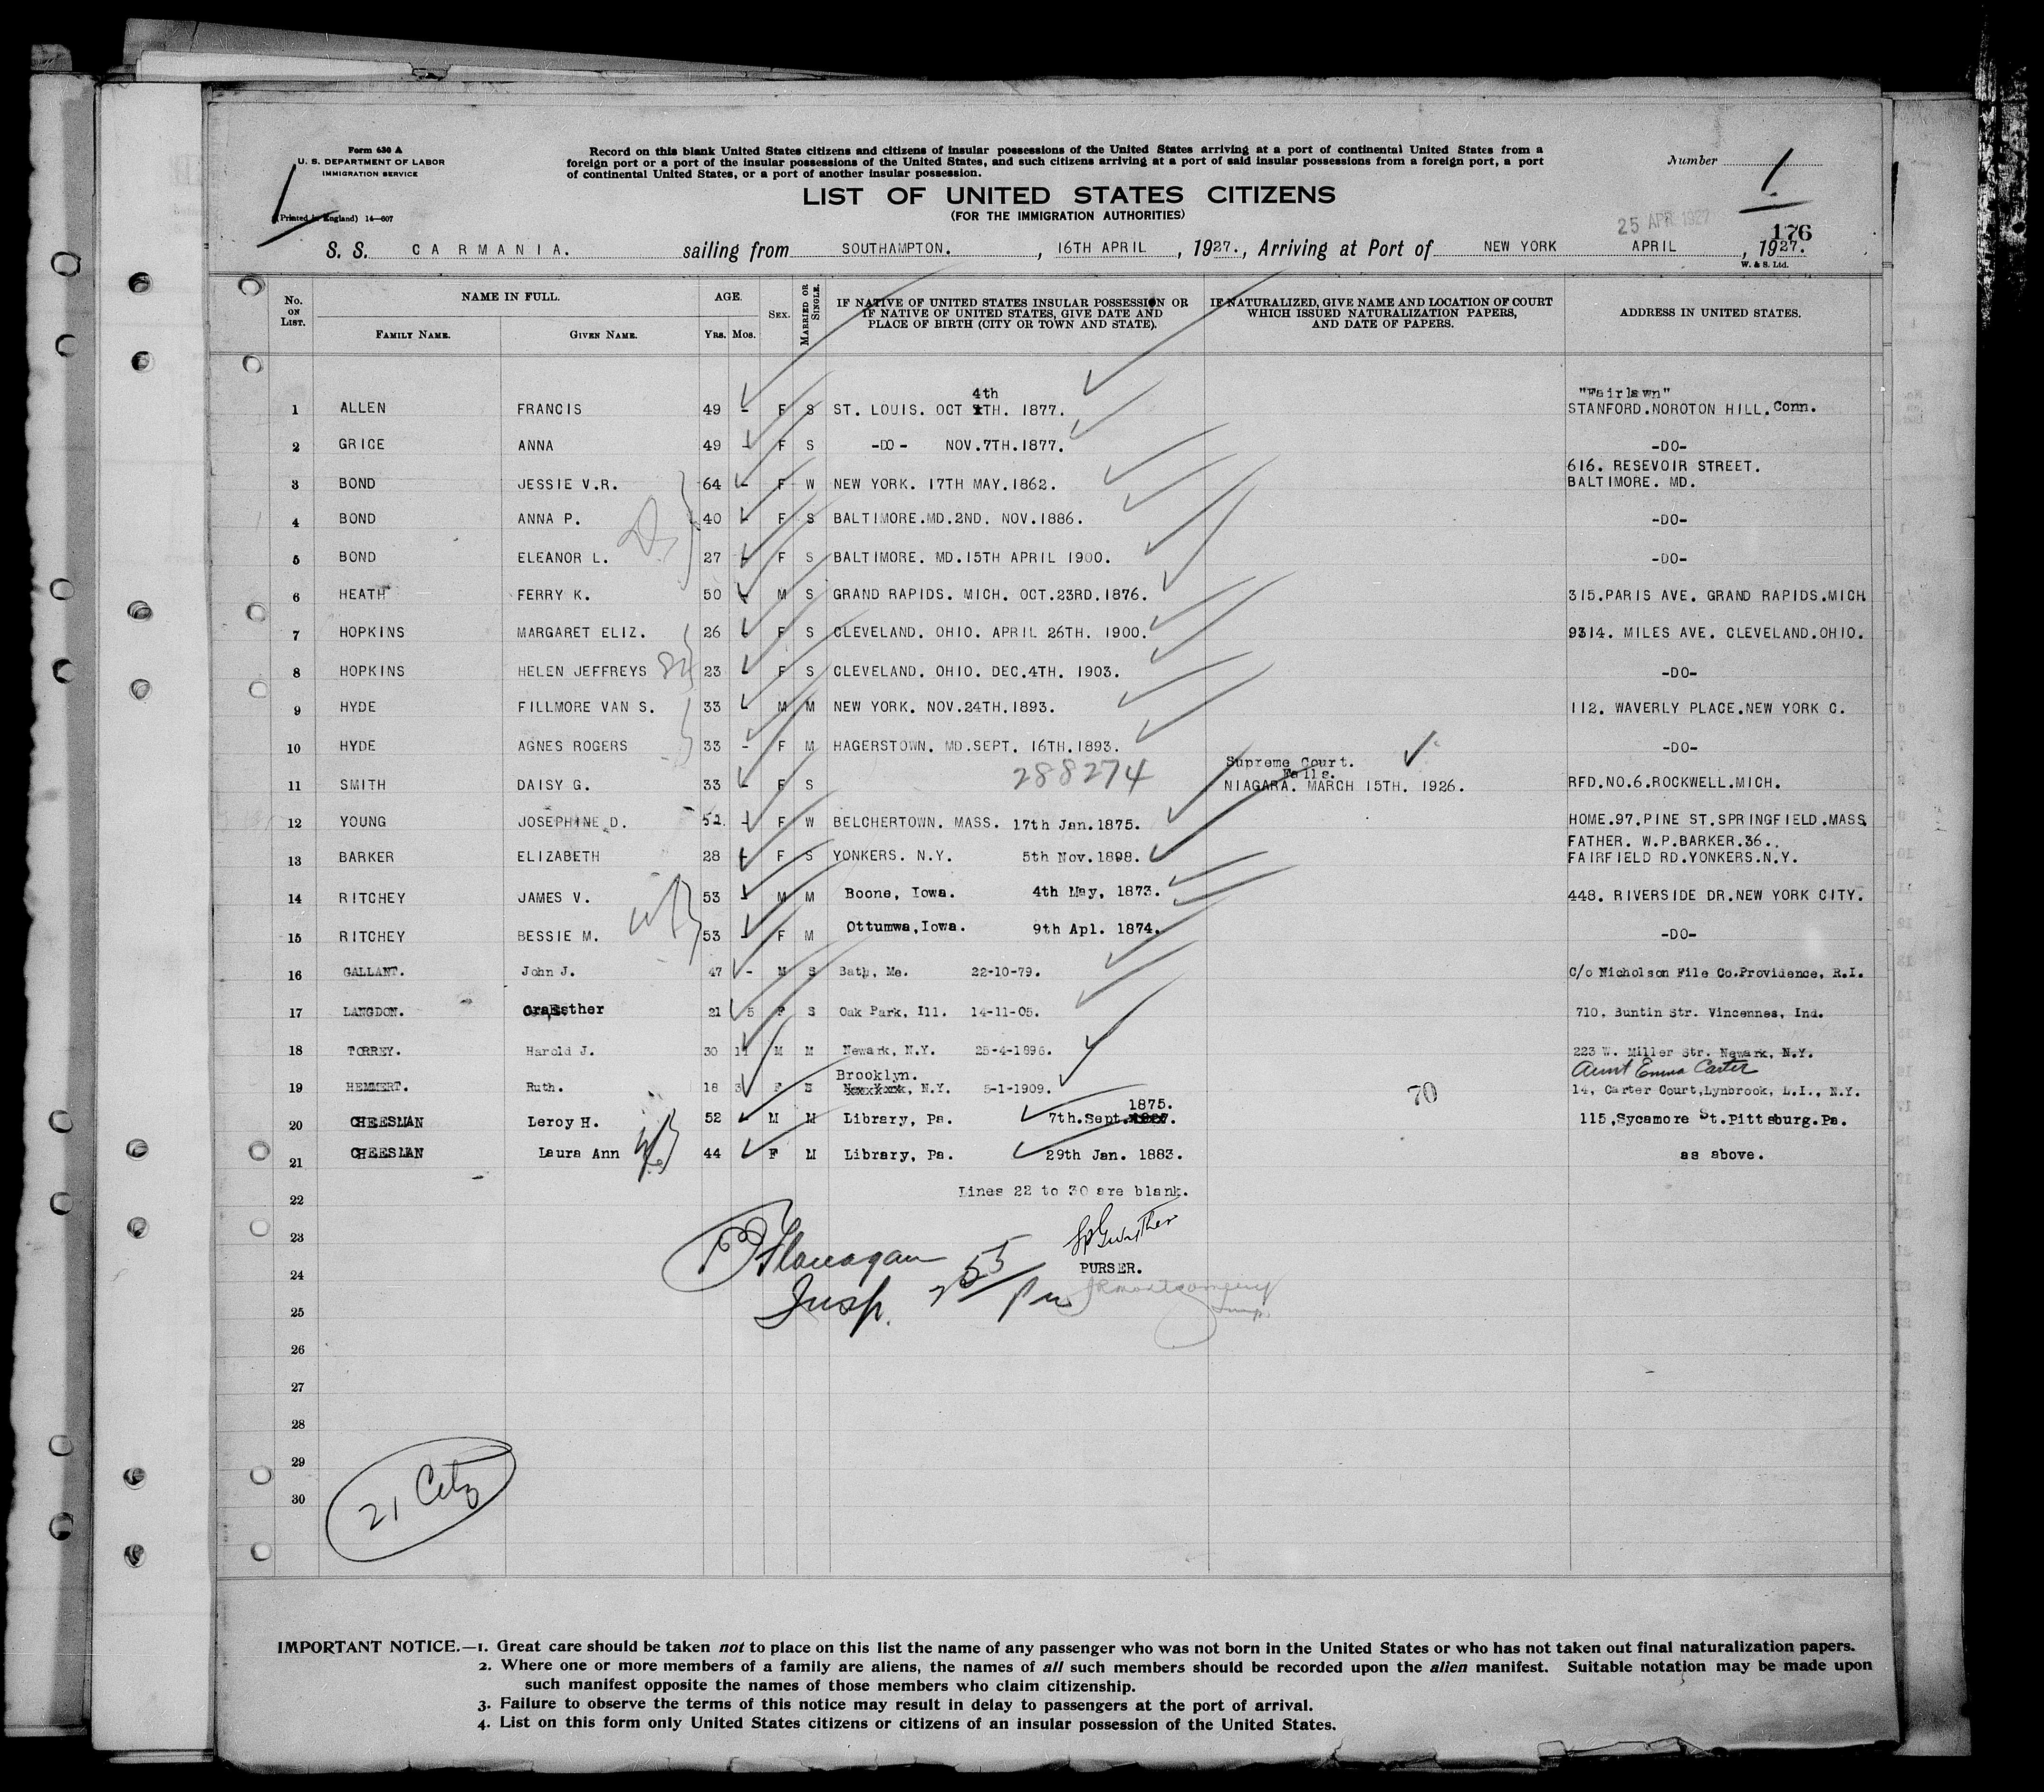 Form 630 A
U. S. DEPARTMENT OF LABOR
IMMIGRATION SERVICE
(Printed in England) 14—607
Record on this blank United States citizens and citizens of insular possessions of the United States arriving at a port of continental United States from a
foreign port or a port of the insular possessions of the United States, and such citizens arriving at a port of said insular possessions from a foreign port, a port
of continental United States, or a port of another insular possession.
Number 1
LIST OF UNITED STATES CITIZENS
(FOR THE IMMIGRATION AUTHORITIES)
25 APR 1927
176
S. S. CARMANIA. sailing from SOUTHAMPTON. , 16TH APRIL , 1927. , Arriving at Port of NEW YORK APRIL , 1927.
W. & S. Ltd.
No. ON LIST. NAME IN FULL. AGE. SEX. MARRIED OR SINGLE. IF NATIVE OF UNITED STATES INSULAR POSSESSION OR IF NATIVE OF UNITED STATES, GIVE DATE AND PLACE OF BIRTH (CITY OR TOWN AND STATE). IF NATURALIZED, GIVE NAME AND LOCATION OF COURT WHICH ISSUED NATURALIZATION PAPERS, AND DATE OF PAPERS. ADDRESS IN UNITED STATES.
FAMILY NAME. GIVEN NAME. YRS. MOS.
4th "Fairlawn"
1 ALLEN FRANCIS 49 - F S ST. LOUIS. OCT TH. 1877. STANFORD.NOROTON HILL. Conn.
2 GRICE ANNA 49 - F S -DO- NOV.7TH.1877. -DO-
616. RESEVOIR STREET.
3 BOND JESSIE V.R. 64 - F W NEW YORK. 17TH MAY.1862. BALTIMORE. MD.
4 BOND ANNA P. 40 - F S BALTIMORE.MD.2ND. NOV.1886. -DO-
5 BOND ELEANOR L. 27 - F S BALTIMORE. MD.15TH APRIL 1900. -DO-
6 HEATH FERRY K. 50 - M S GRAND RAPIDS. MICH. OCT.23RD.1876. 315.PARIS AVE. GRAND RAPIDS.MICH
7 HOPKINS MARGARET ELIZ. 26 - F S CLEVELAND. OHIO. APRIL 26TH. 1900. 9314. MILES AVE. CLEVELAND.OHIO.
8 HOPKINS HELEN JEFFREYS 23 - F S CLEVELAND. OHIO. DEC.4TH. 1903. -DO-
9 HYDE FILLMORE VAN S. 33 - M M NEW YORK. NOV.24TH.1893. 112. WAVERLY PLACE.NEW YORK C.
10 HYDE AGNES ROGERS 33 - F M HAGERSTOWN. MD.SEPT. 16TH.1893. -DO-
Supreme Court.
288274 Falls.
11 SMITH DAISY G. 33 - F S NIAGARA. MARCH 15TH. 1926. RFD.NO.6.ROCKWELL.MICH.
12 YOUNG JOSEPHINE D. 52. - F W BELCHERTOWN. MASS. 17th Jan.1875. HOME.97.PINE ST.SPRINGFIELD.MASS
FATHER. W.P.BARKER.36..
13 BARKER ELIZABETH 28 - F S YONKERS. N.Y. 5th Nov.1898. FAIRFIELD RD.YONKERS.N.Y.
14 RITCHEY JAMES V. 53 - M M Boone, Iowa. 4th May, 1873. 448. RIVERSIDE DR.NEW YORK CITY.
15 RITCHEY BESSIE M. 53 - F M Ottumwa,Iowa. 9th Apl. 1874. -DO-
16 GALLANT. John J. 47 - M S Bath, Me. 22-10-79. C/o Nicholson File Co.Providence, R.I.
17 LANGDON. Esther 21 5 F S Oak Park, Ill. 14-11-05. 710, Buntin Str. Vincennes, Ind.
18 TORREY. Harold J. 30 11 M M Newark, N.Y. 25-4-1896. 223 W. Miller Str. Newark, N.Y.
Brooklyn. Aunt Emma Carter
19 HEMMERT. Ruth. 18 3 F S New York, N.Y. 5-1-1909. 70 14, Carter Court,Lynbrook, L.I., N.Y.
1875.
20 CHEESMAN Leroy H. 52 - M M Library, Pa. 7th.Sept.1927. 115,Sycamore St.Pittsburg.Pa.
21 CHEESMAN Laura Ann 44 F M Library, Pa. 29th Jan. 1883. as above.
22 Lines 22 to 30 are blank.
23
Flanagan
24 PURSER.
Insp. 2 55/ Pm JR Montgomery
25 Insp.
26
27
28
29
21 Citz
30
IMPORTANT NOTICE.—1. Great care should be taken not to place on this list the name of any passenger who was not born in the United States or who has not taken out final naturalization papers.
2. Where one or more members of a family are aliens, the names of all such members should be recorded upon the alien manifest. Suitable notation may be made upon
such manifest opposite the names of those members who claim citizenship.
3. Failure to observe the terms of this notice may result in delay to passengers at the port of arrival.
4. List on this form only United States citizens or citizens of an insular possession of the United States.